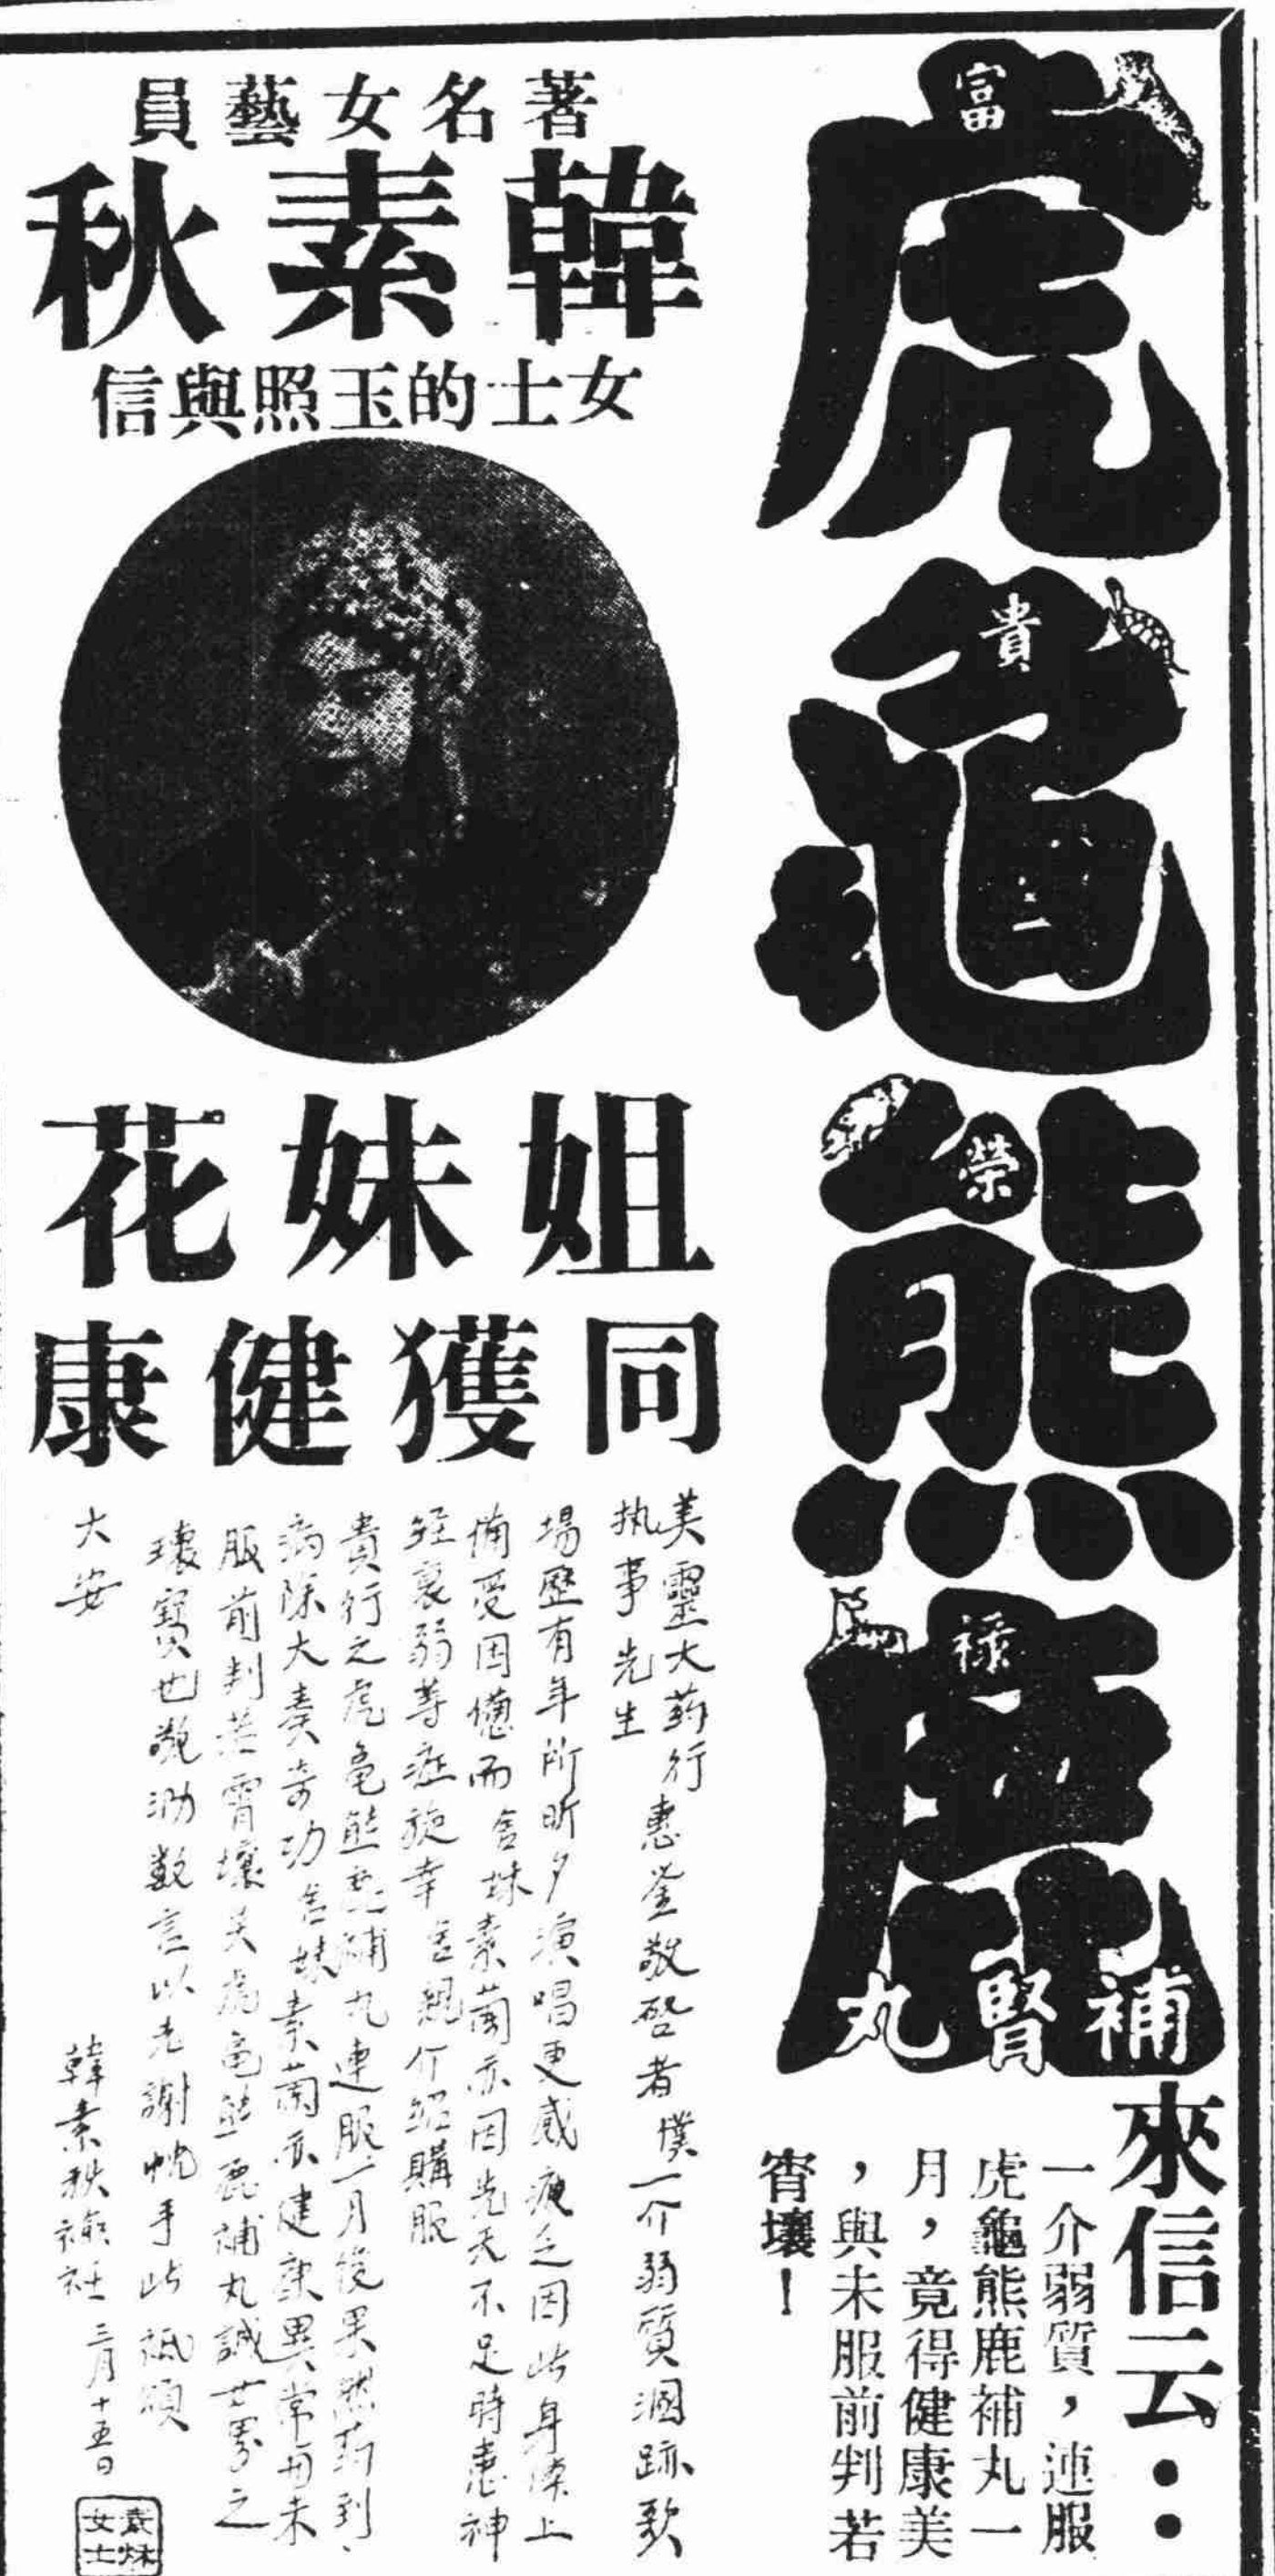 虎龜熊鹿
富
貴
榮
祿
補腎丸
來信云：
一介弱質，連服
虎龜熊鹿補丸一
月，竟得健康美
，與未服前判若
霄壤！
著名女藝員
韓素秋
女士的玉照與信
姐妹花
同獲健康
美靈大药行
执事先生 惠鉴敬啓者 僕一介弱質溷跡歌
場歷有年所昕夕演唱更感疲乏因此身体上
備受困憊而 舍妹素蘭亦因先天不足時患神
經衰弱等症旋幸 舍親介紹購服
貴行之虎龟熊鹿補丸連服一月後果然药到
病除大奏奇功 舍妹素蘭亦健康異常與未
服前判若霄壤 虎龟熊鹿補丸誠世界之
瓌寶也 数言以 謝 手此 祗頌
大安
韓素秋 三月十五日
素秋女士